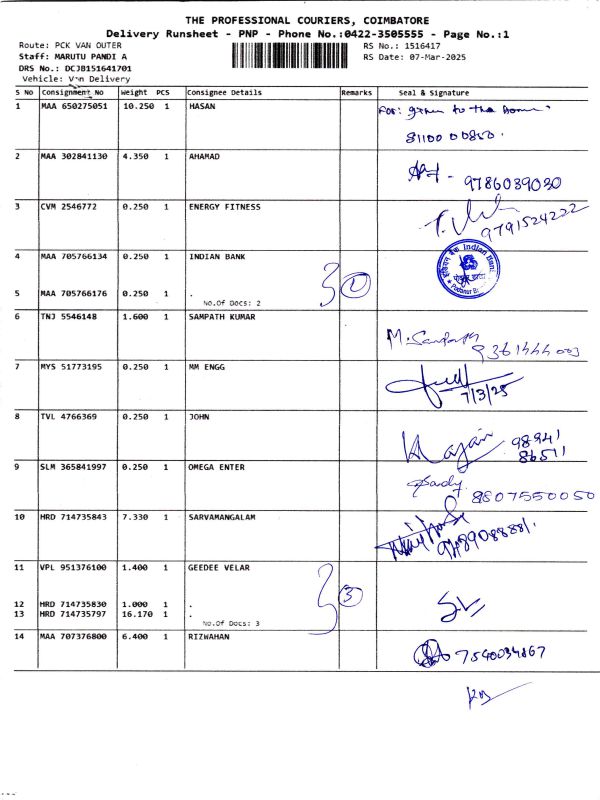 THE PROFESSIONAL COURIERS, COIMBATORE
Delivery Runsheet - PNP - Phone No.:0422-3505555 - Page No.:1
Route: PCK VAN OUTER RS No.: 1516417
Staff: MARUTU PANDI A RS Date: 07-Mar-2025
DRS No.: DCJB151641701
Vehicle: Van Delivery
S No Consignment No Weight PCS Consignee Details Remarks Seal & Signature
1 MAA 650275051 10.250 1 HASAN
For: given to the
81100 00850.
2 MAA 302841130 4.350 1 AHAMAD
- 9786039030
3 CVM 2546772 0.250 1 ENERGY FITNESS
9791524222
4 MAA 705766134 0.250 1 INDIAN BANK
Indian Bank
5 MAA 705766176 0.250 1 .
No.Of Docs: 2
6 TNJ 5546148 1.600 1 SAMPATH KUMAR
M. Sampath
9361444003
7 MYS 51773195 0.250 1 MM ENGG
7/3/25
8 TVL 4766369 0.250 1 JOHN
98941
86511
9 SLM 365841997 0.250 1 OMEGA ENTER
8807550050
10 HRD 714735843 7.330 1 SARVAMANGALAM
11 VPL 951376100 1.400 1 GEEDEE VELAR
3
12 HRD 714735830 1.000 1 .
13 HRD 714735797 16.170 1 .
No.Of Docs: 3
14 MAA 707376800 6.400 1 RIZWAHAN
7540034867